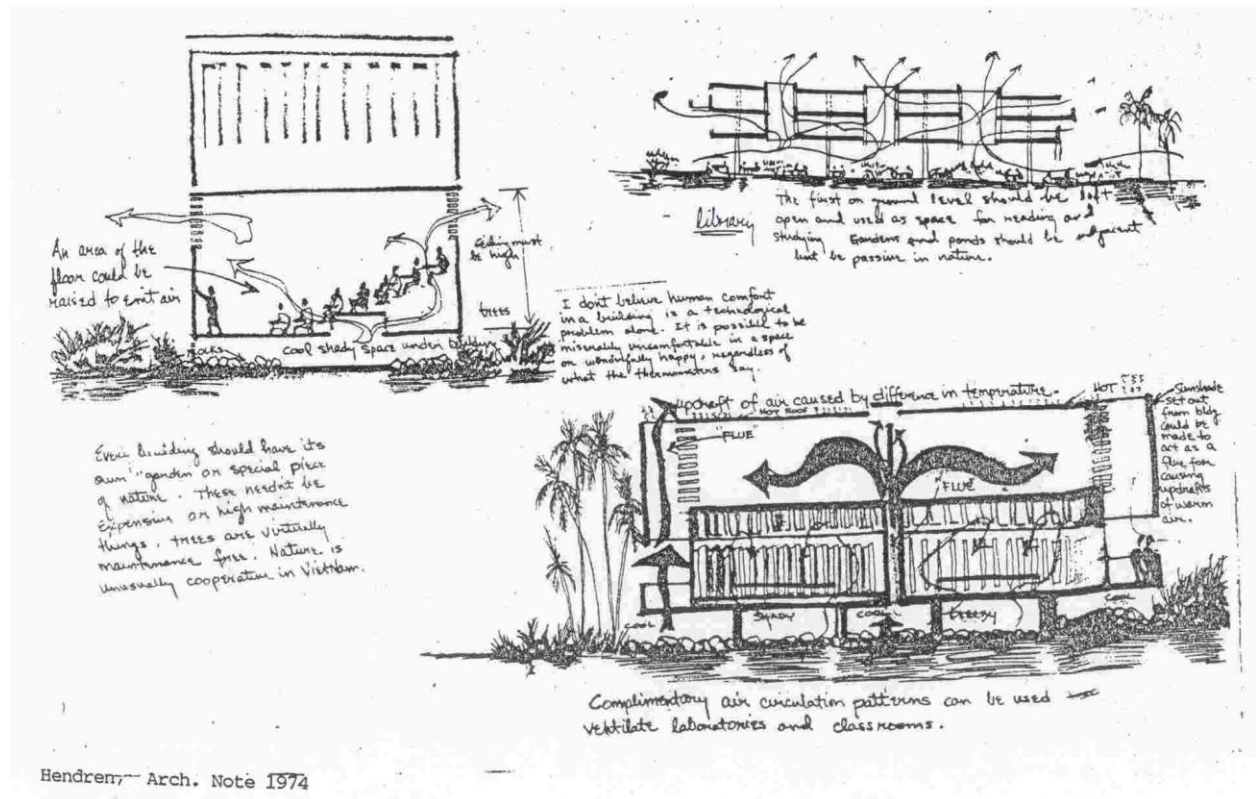 An area of the
floor could be
raised to emit air
Ceiling must
be high
trees
rocks
cool shady space under building
library
The first or ground level should be left
open and used as space for reading and
studying Gardens and ponds should be adjacent
but be passive in nature.
I don't believe human comfort
in a building is a technological
problem alone. It is possible to be
miserably uncomfortable in a space
or wonderfully happy, regardless of
what the thermometers say.
Every building should have its
own "garden or special piece
of nature. These needn't be
expensive or high maintenance
things, trees are virtually
maintenance free. Nature is
unusually cooperative in Vietnam.
updraft of air caused by difference in temperature.
HOT ROOF
HOT
"FLUE"
"FLUE"
Sunshade
set out
from bldg
could be
made to
act as a
flue for
causing
updrafts
of warm
air.
COOL
SHADY
COOL
BREEZY
COOL
Complimentary air circulation patterns can be used
ventilate laboratories and classrooms.
Hendren, Arch. Note 1974